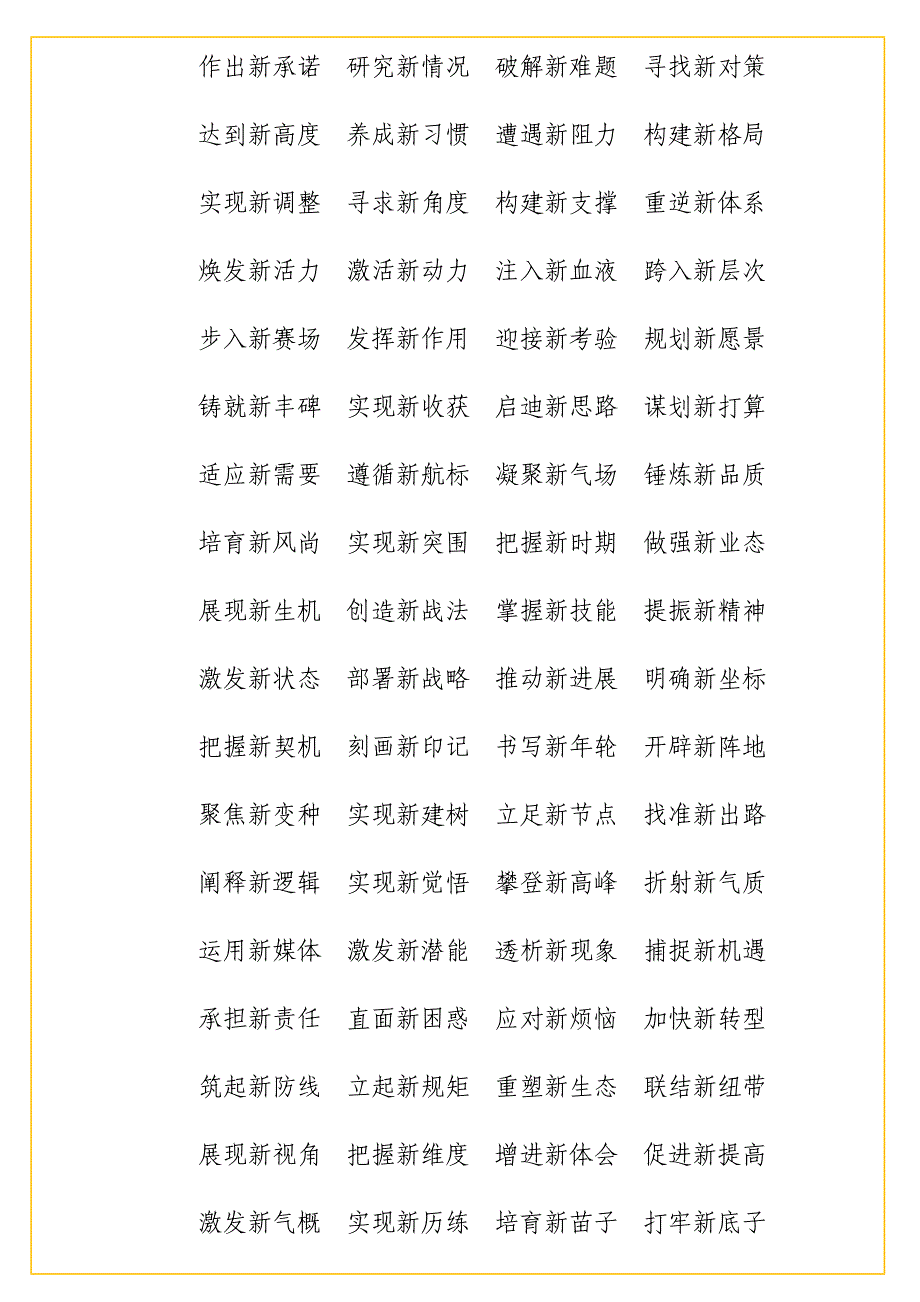 作出新承诺 研究新情况 破解新难题 寻找新对策
达到新高度 养成新习惯 遭遇新阻力 构建新格局
实现新调整 寻求新角度 构建新支撑 重逆新体系
焕发新活力 激活新动力 注入新血液 跨入新层次
步入新赛场 发挥新作用 迎接新考验 规划新愿景
铸就新丰碑 实现新收获 启迪新思路 谋划新打算
适应新需要 遵循新航标 凝聚新气场 锤炼新品质
培育新风尚 实现新突围 把握新时期 做强新业态
展现新生机 创造新战法 掌握新技能 提振新精神
激发新状态 部署新战略 推动新进展 明确新坐标
把握新契机 刻画新印记 书写新年轮 开辟新阵地
聚焦新变种 实现新建树 立足新节点 找准新出路
阐释新逻辑 实现新觉悟 攀登新高峰 折射新气质
运用新媒体 激发新潜能 透析新现象 捕捉新机遇
承担新责任 直面新困惑 应对新烦恼 加快新转型
筑起新防线 立起新规矩 重塑新生态 联结新纽带
展现新视角 把握新维度 增进新体会 促进新提高
激发新气概 实现新历练 培育新苗子 打牢新底子